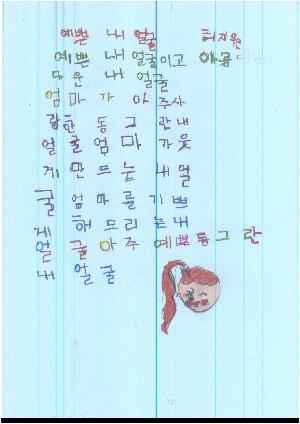 예쁜 내 얼굴 허지원
예쁜 내 얼굴이고 아름
다운 내 얼굴
엄마가 아주사
랑한 동그란내
얼굴엄마가웃
게만드는내얼
굴 엄마를기쁘
게해드리는내
얼굴아주예쁘동그란
내얼굴